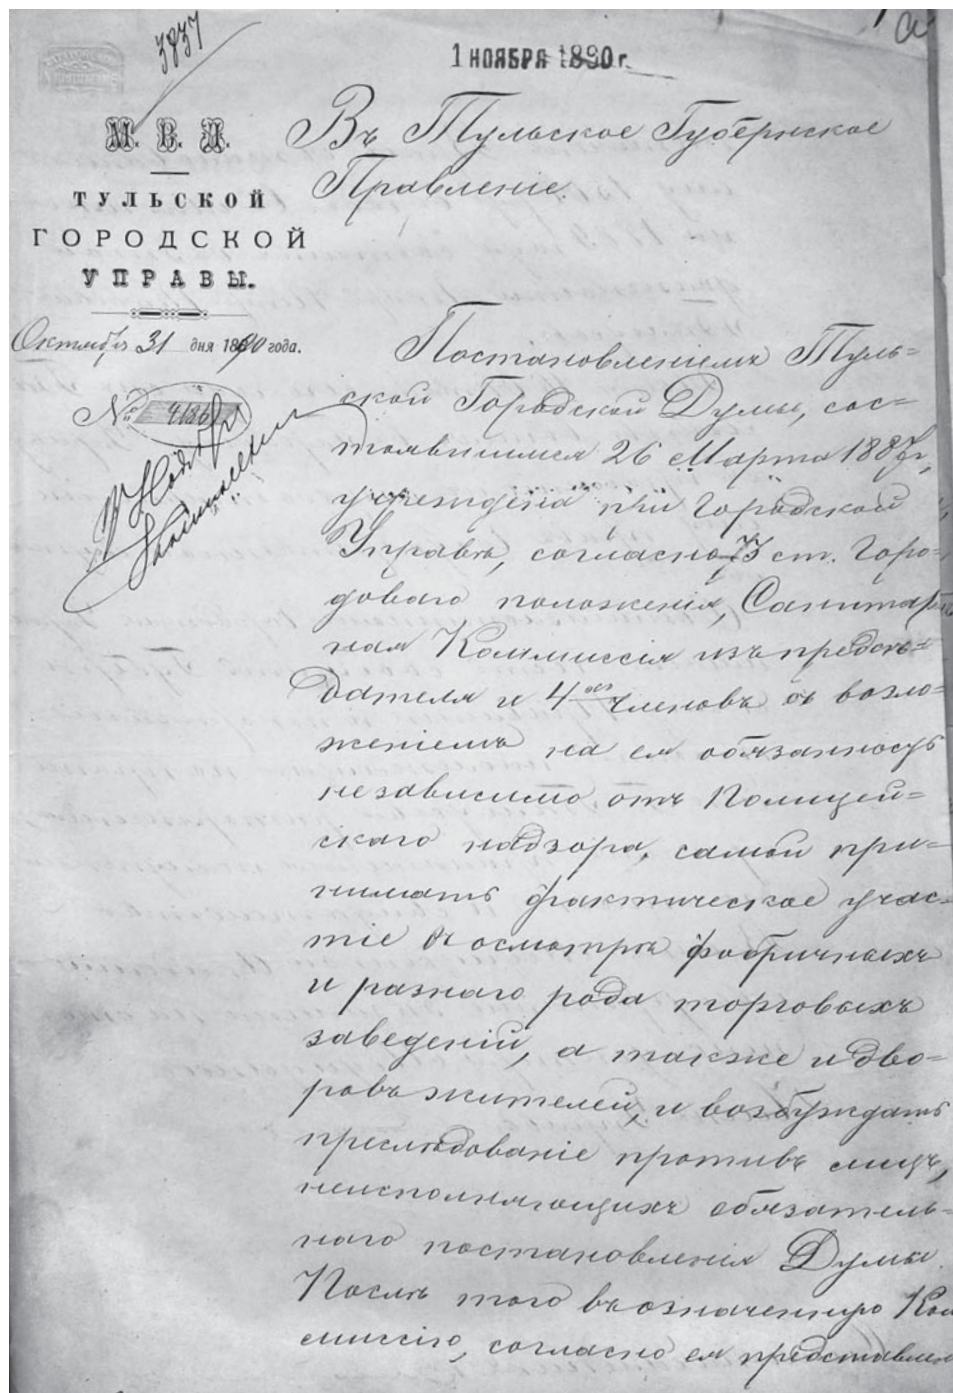 3837
1 НОЯБРЯ 1890 г.
М. В. Д.
ТУЛЬСКОЙ
ГОРОДСКОЙ
УПРАВЫ.
Октября 31 дня 1890 года.
№ 4186
Въ Тульское Губернское
Правленіе.
Постановленіемъ Туль=
ской Городской Думы, сос=
тоявшимся 26 Марта 1887 г.,
учреждена при Городской
Управѣ, согласно 73 ст. Горо=
доваго положенія, Санитар
ная Коммиссія изъ предсѣ=
дателя и 4 ехъ членовъ съ возло=
женіемъ на ея обязанность
независимо отъ Полицей=
скаго надзора, самой при=
нимать фактическое учас=
тіе въ осмотрѣ фабричныхъ
и разнаго рода торговыхъ
заведеній, а также и дво=
ровъ жителей, и возбуждать
преслѣдованіе противъ лицъ,
неисполняющихъ обязатель=
наго постановленія Думы.
Послѣ того въ означенную Ком
миссію, согласно ея представлен